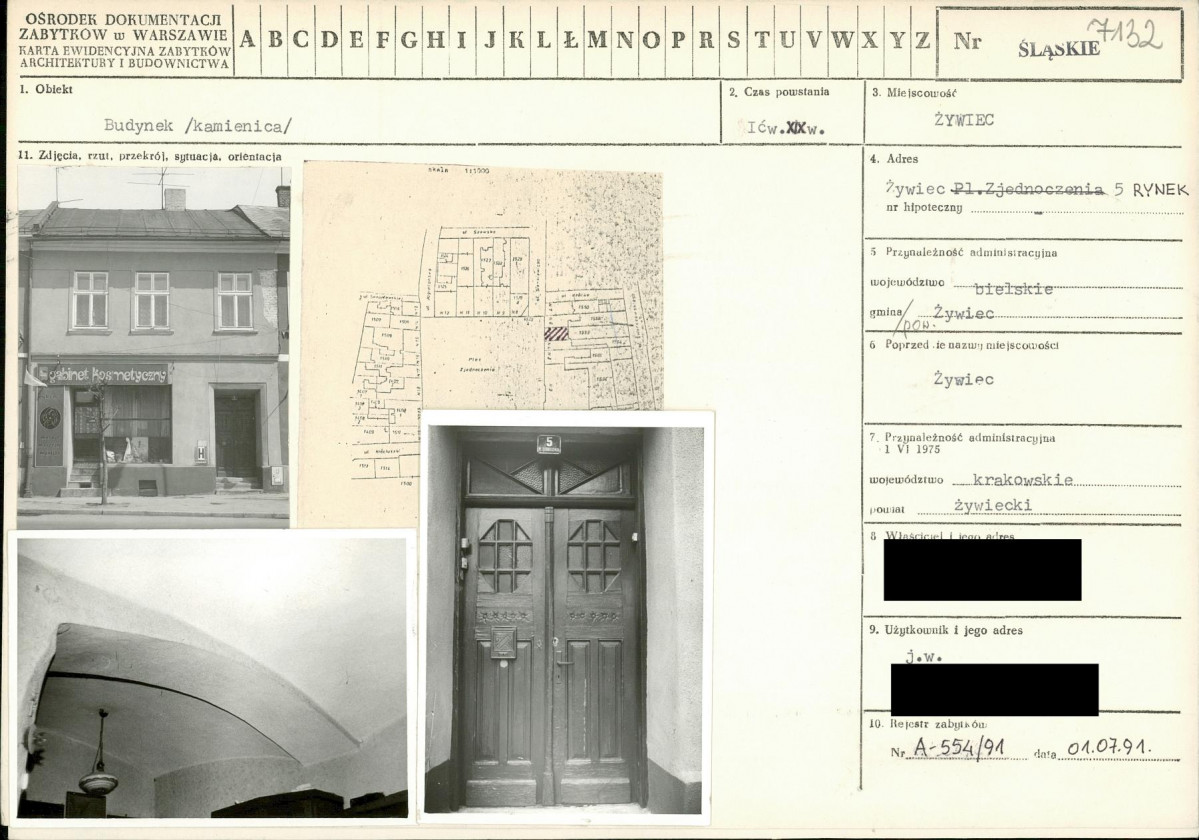 OŚRODEK DOKUMENTACJI
ZABYTKÓW w WARSZAWIE
KARTA EWIDENCYJNA ZABYTKÓW
ARCHITEKTURY I BUDOWNICTWA
A B C D E F G H I J K L Ł M N O P R S T U V W X Y Z
Nr ŚLĄSKIE 7132
1. Obiekt
Budynek /kamienica/
2. Czas powstania
XIX w.
3. Miejscowość
ŻYWIEC
11. Zdjęcia, rzut, przekrój, sytuacja, orientacja
4. Adres
Żywiec Pl.Zjednoczenia 5 RYNEK
nr hipoteczny -
5 Przynależność administracyjna
województwo bielskie
gmina/pow. Żywiec
6 Poprzed ie nazwy miejscowości
Żywiec
7. Przynależność administracyjna
1 VI 1975
województwo krakowskie
powiat żywiecki
8 Właściciel i jego adres
9. Użytkownik i jego adres
j.w.
10. Rejestr zabytków
Nr A-554/91 data 01.07.91.
skala 1:1000
Plac
Zjednoczenia
gabinet kosmetyczny
H
5